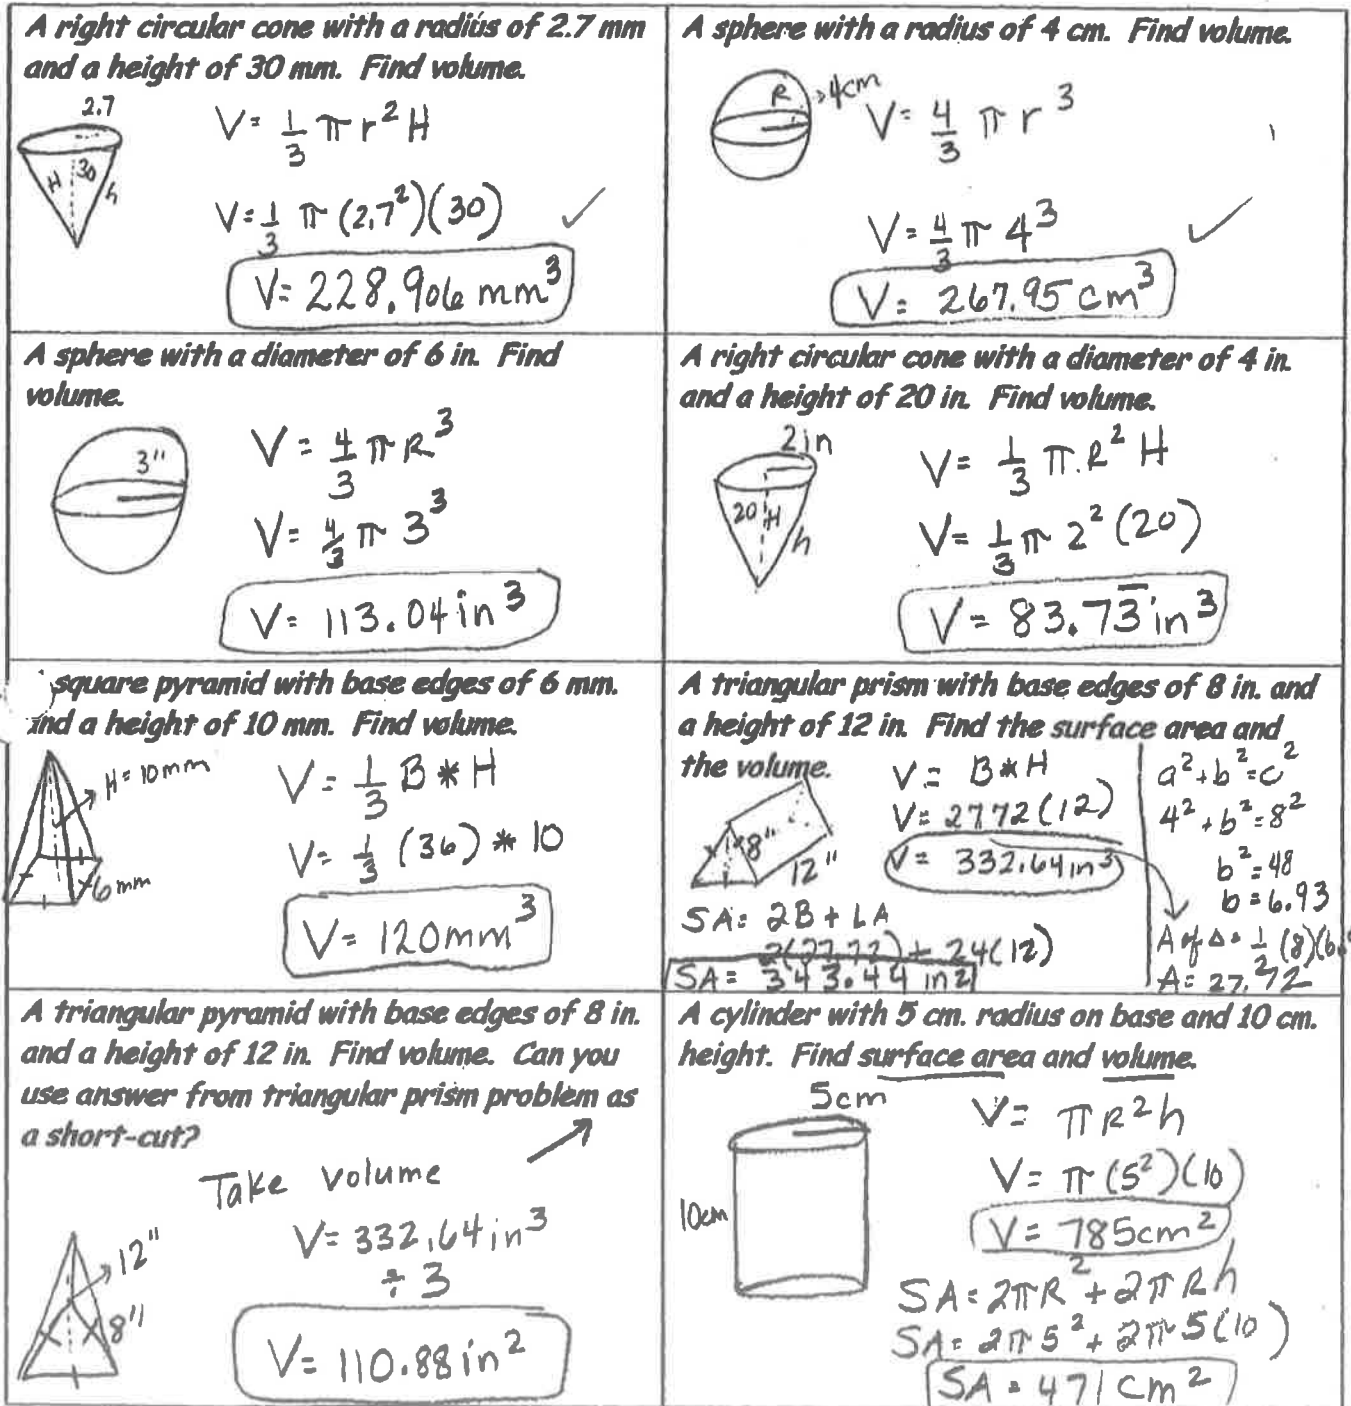 A right circular cone with a radius of 2.7 mm
and a height of 30 mm. Find volume.
2.7
H 30 h
V= 1/3 π r² H
V= 1/3 π (2.7²)(30)
V= 228.906 mm³
A sphere with a radius of 4 cm. Find volume.
R 4cm
V= 4/3 π r³
V= 4/3 π 4³
V= 267.95 cm³
A sphere with a diameter of 6 in. Find
volume.
3"
V= 4/3 π R³
V= 4/3 π 3³
V= 113.04 in³
A right circular cone with a diameter of 4 in.
and a height of 20 in. Find volume.
2in
20 H h
V= 1/3 π.R² H
V= 1/3 π 2² (20)
V= 83.73̅ in³
square pyramid with base edges of 6 mm.
and a height of 10 mm. Find volume.
H=10mm
6mm
V= 1/3 B * H
V= 1/3 (36) * 10
V= 120mm³
A triangular prism with base edges of 8 in. and
a height of 12 in. Find the surface area and
the volume.
8"
12"
V= B*H
V= 2772(12)
V= 332.64in³
SA= 2B + LA
2(27.72) + 24(12)
SA= 343.44 in2
a²+b²=c²
4²+b²=8²
b²=48
b=6.93
A of Δ= 1/2 (8)(6.
A= 27.72
A triangular pyramid with base edges of 8 in.
and a height of 12 in. Find volume. Can you
use answer from triangular prism problem as
a short-cut?
Take volume
12"
8"
V= 332.64in³
÷ 3
V= 110.88 in²
A cylinder with 5 cm. radius on base and 10 cm.
height. Find surface area and volume.
5cm
10cm
V= πR²h
V= π(5²)(10)
V= 785cm²
SA= 2πR² + 2πRh
SA= 2π5² + 2π5(10)
SA= 471 cm²